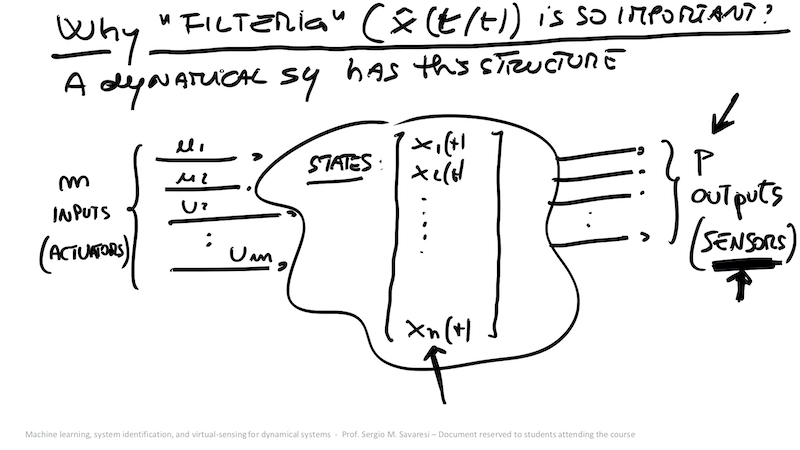 Why "FILTERIG" (x̂(t/t)) IS SO IMPORTANT?
A dyNAMICAL SY HAS thIS STRUCTURE
m
INPUTS
(ACTUATORS)
u1
u2
U2
:
Um
STATES:
x1(t)
x2(t)
xn(t)
P
OUTPUTS
(SENSORS)
Machine learning, system identification, and virtual-sensing for dynamical systems - Prof. Sergio M. Savaresi – Document reserved to students attending the course